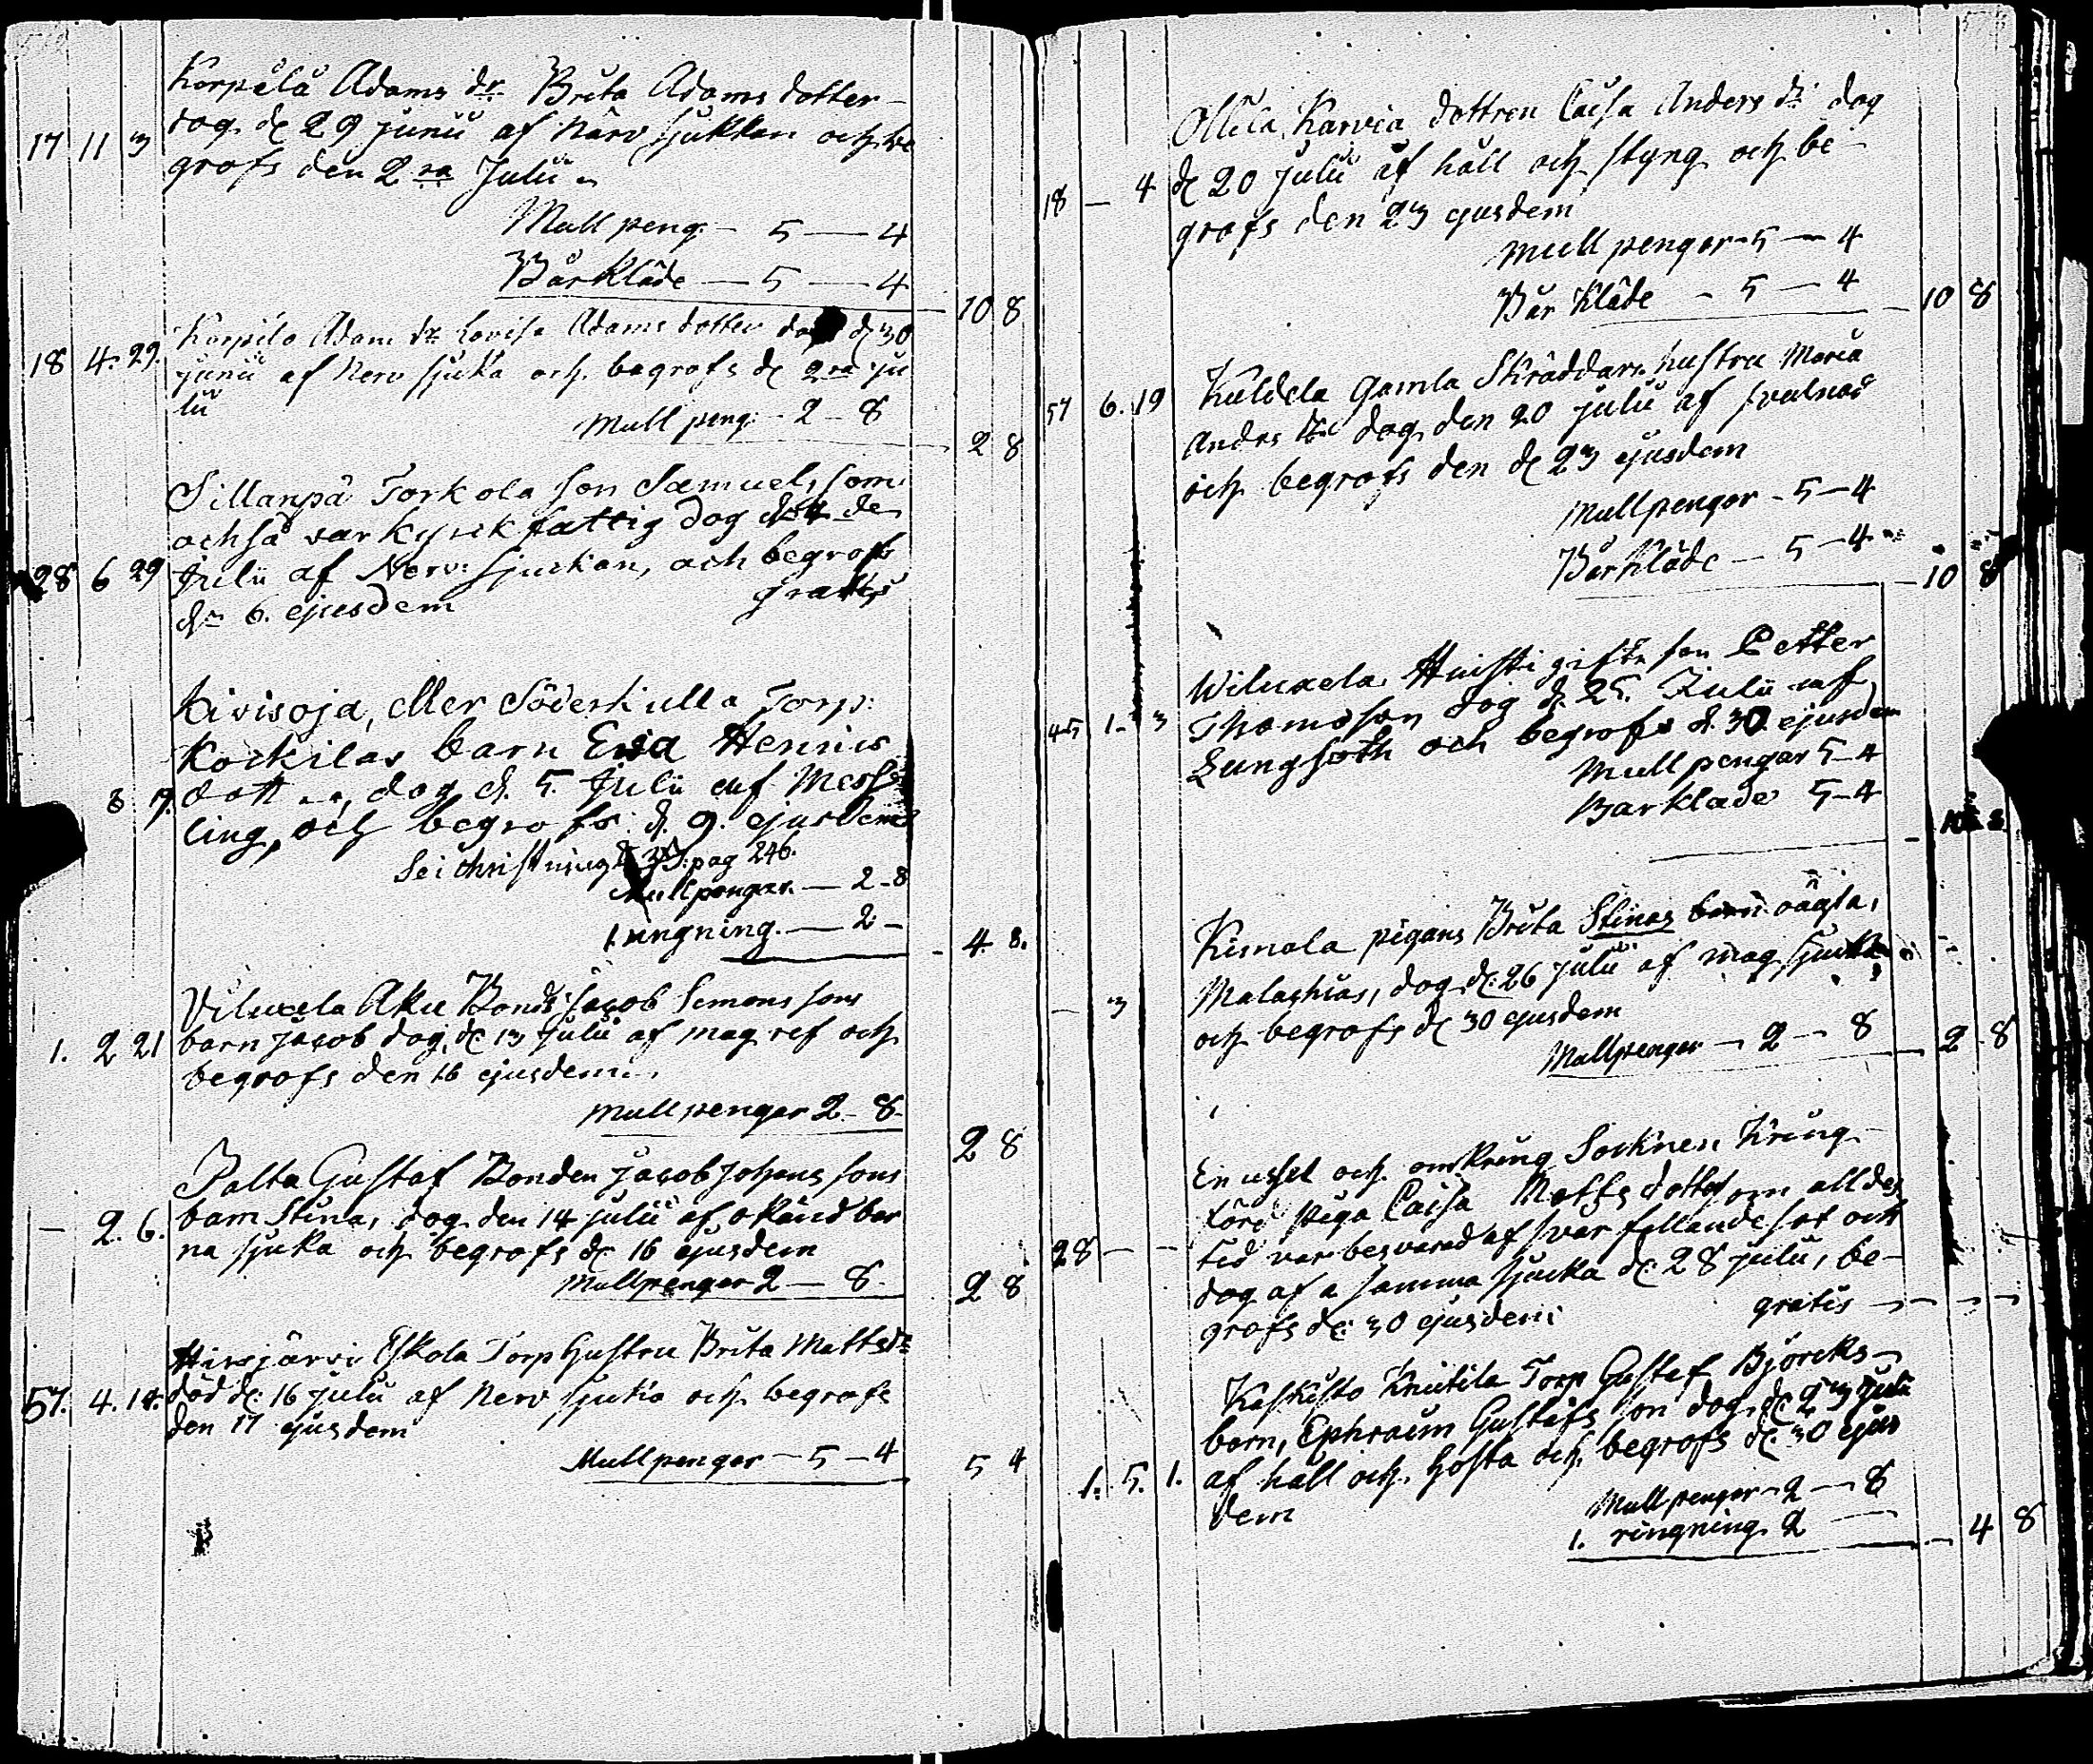 Korpela Adams dr. Brita Adams dotter
17 11 3 dog d 29 junii af Närv sjukkan och be
grofs den 2ra Julii
Mull peng. - 5 — 4
Bårkläde — 5 — 4
10 8
Korpila Adam dr. Lovisa Adams dotter dog d 30
18 4. 29. junii af Nerv sjuka och begrofs d 2ra ju
lii
Mull peng. - 2 - 8
2 8
Sillanpä Torkola son Samuel, som
ochså var kyrck fattig dog d 4 de
28 6 29 Julii af Nerv: sjuckan, och begrofs
dn 6. ejusdem gratis
Kivisoja, eller Söderkulla Torp:
Kockilas barn Eva Henrics
8 17. dott.., dog d. 5. Julii af Mess
ling, och begrofs d. 9. ejusdem
pag 246.
Mullpengar. — 2 - 8
1 ringning. — 2 -
4. 8.
Viluxela Aku Bond: Jacob Simons sons
1. 2 21 barn Jacob dog, d 13 Julii af mag ref och
begrofs den 16 ejusdem..
Mullpengar 2 - 8 -
2 8
Palta Gustaf Bonden Jacob Johans sons
— 2. 6. barn Stina, dog den 14 julii af okänd bar
na sjuka och begrofs d 16 ejusdem
Mullpengar 2 — 8.
2 8
Hirvijärvi Eskola Torp Hustru Brita Matts dr
57. 4. 14. död d. 16 julii af Nerv sjuka och begrofs
den 17 ejusdem
Mullpengar — 5 — 4 5 4
Ollila, Karvia dottren Caisa Anders dr dog
18 — 4 d 20 Julii af håll och styng och be-
grofs den 23 ejusdem
Mull pengar - 5 — 4
Bår kläde - 5 — 4
10 8
Kuldela Gamla Skräddar hustru Maria
57 6. 19 Andrs dr dog den 20 julii af svulnad
och begrofs den d 23 ejusdem
Mullpengar - 5 — 4
Bårkläde — 5 — 4
10 8
Wiluxela Huisti gifte son Petter
45 1. 3 Thomason dog d. 25. Julii af
Lungsoth och begrofs d. 30 ejusdem
Mull pengar 5 - 4
Barklade 5 - 4
10 8
Kimola pigans Brita Stinas barn oägta,
— 3 Malachias, dog d. 26 julii af mag sjuka
och begrofs d 30 ejusdem
Mullpengar — 2 — 8 2 8
En ussel och omkring Socknen kring
förd piga Caisa Matts dotter som alldes
28 — — tid var besvärad af svår fallande sot och
dog af a samma sjucka d. 28 julii, be-
grofs d. 30 ejusdem: gratis — — —
Kaskisto Knutila Torp Gustaf Björcks
barn, Ephraim Gustafs son dog, d 23 julii
1. 5. 1. af håll och hosta och begrofs d. 30 ejus
dem Mull pengar - 2 — 8
1. ringning 2 —
4 8